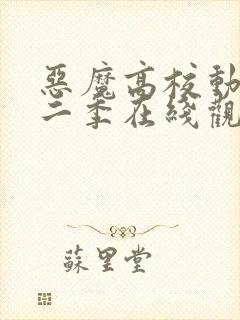 惡魔高校動
二季在綫觀
蘇里堂